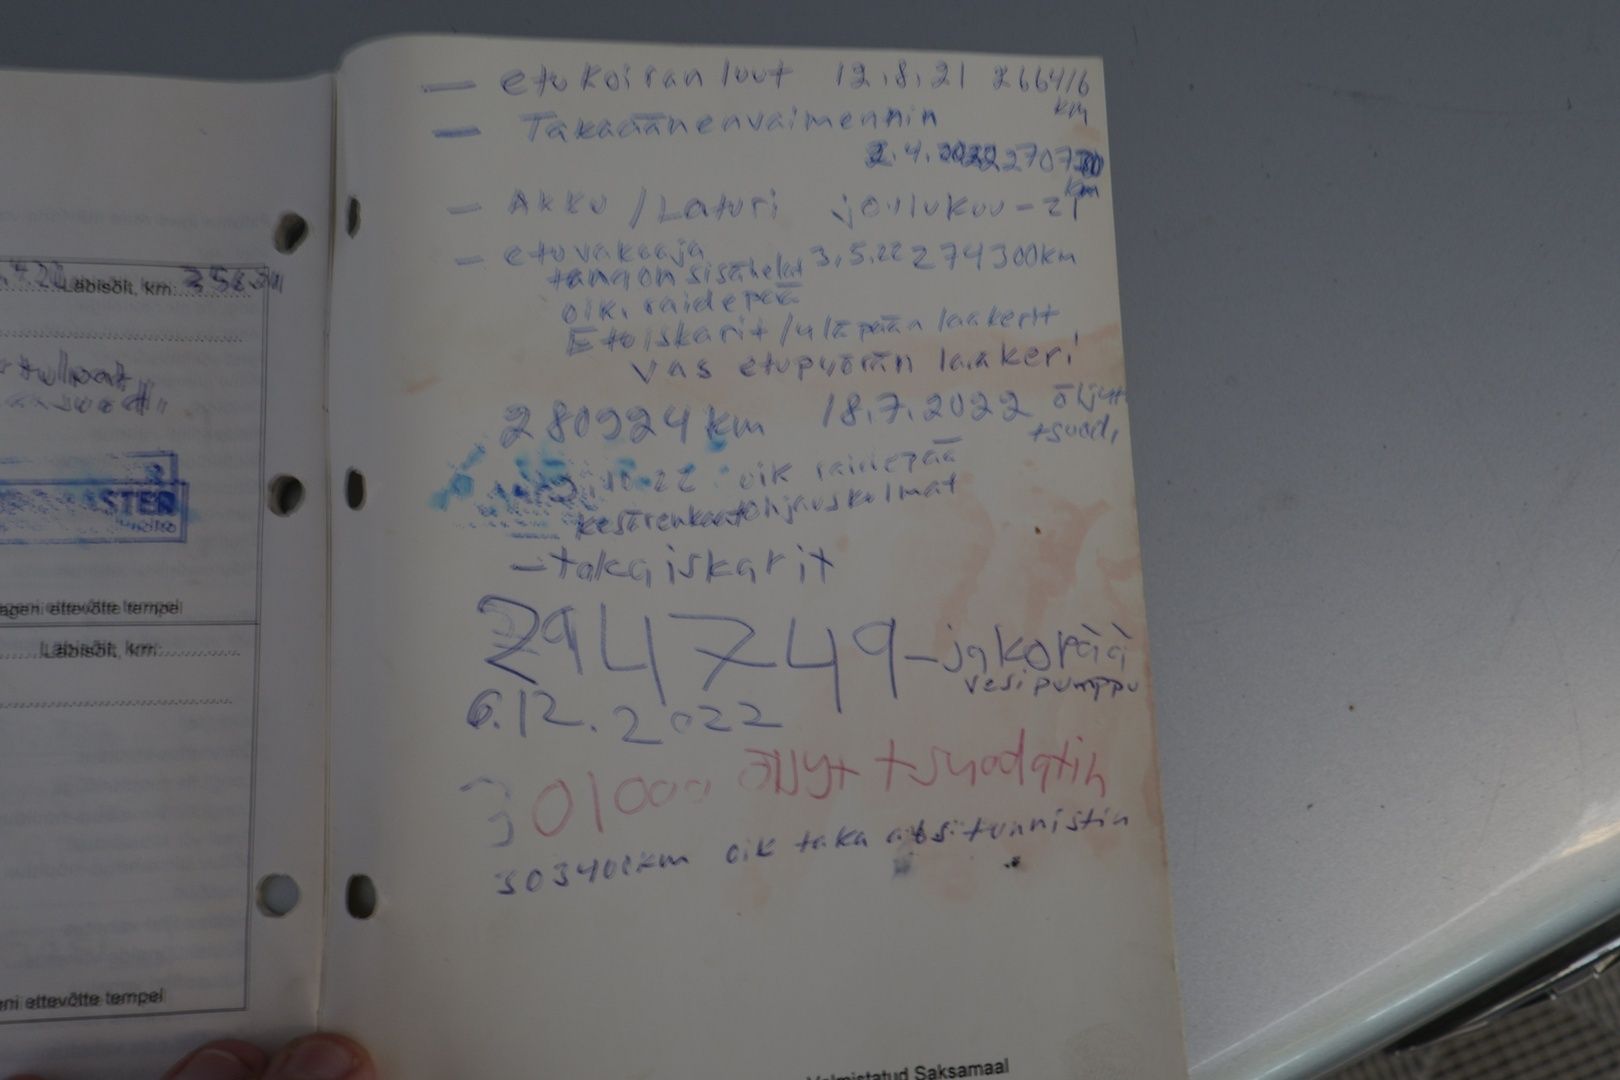 Läbisõit, km:
tulpat
ASTER
ageni ettevõtte tempel
Läbisõit, km:
eni ettevõtte tempel
— etu koiran luut 12.8.21 266416
km
— Takaäänenvaimennin
2.4.2022 2707
km
— Akku / Laturi joulukuu-21
— etuvakaaja 3.5.22 274300km
tangon sisähelat
oik. raidepää
Etuiskarit / yläpään laakerit
vas etupyörän laakeri
280924 km 18.7.2022 öljyt
+suod.
.10.22 oik raidepää
kesärenkaat ohjauskulmat
— takaiskarit
294749 - jakopää
vesipumppu
6.12.2022
301000 öljyt + suodatin
303400km oik taka absitunnistin
Valmistatud Saksamaal